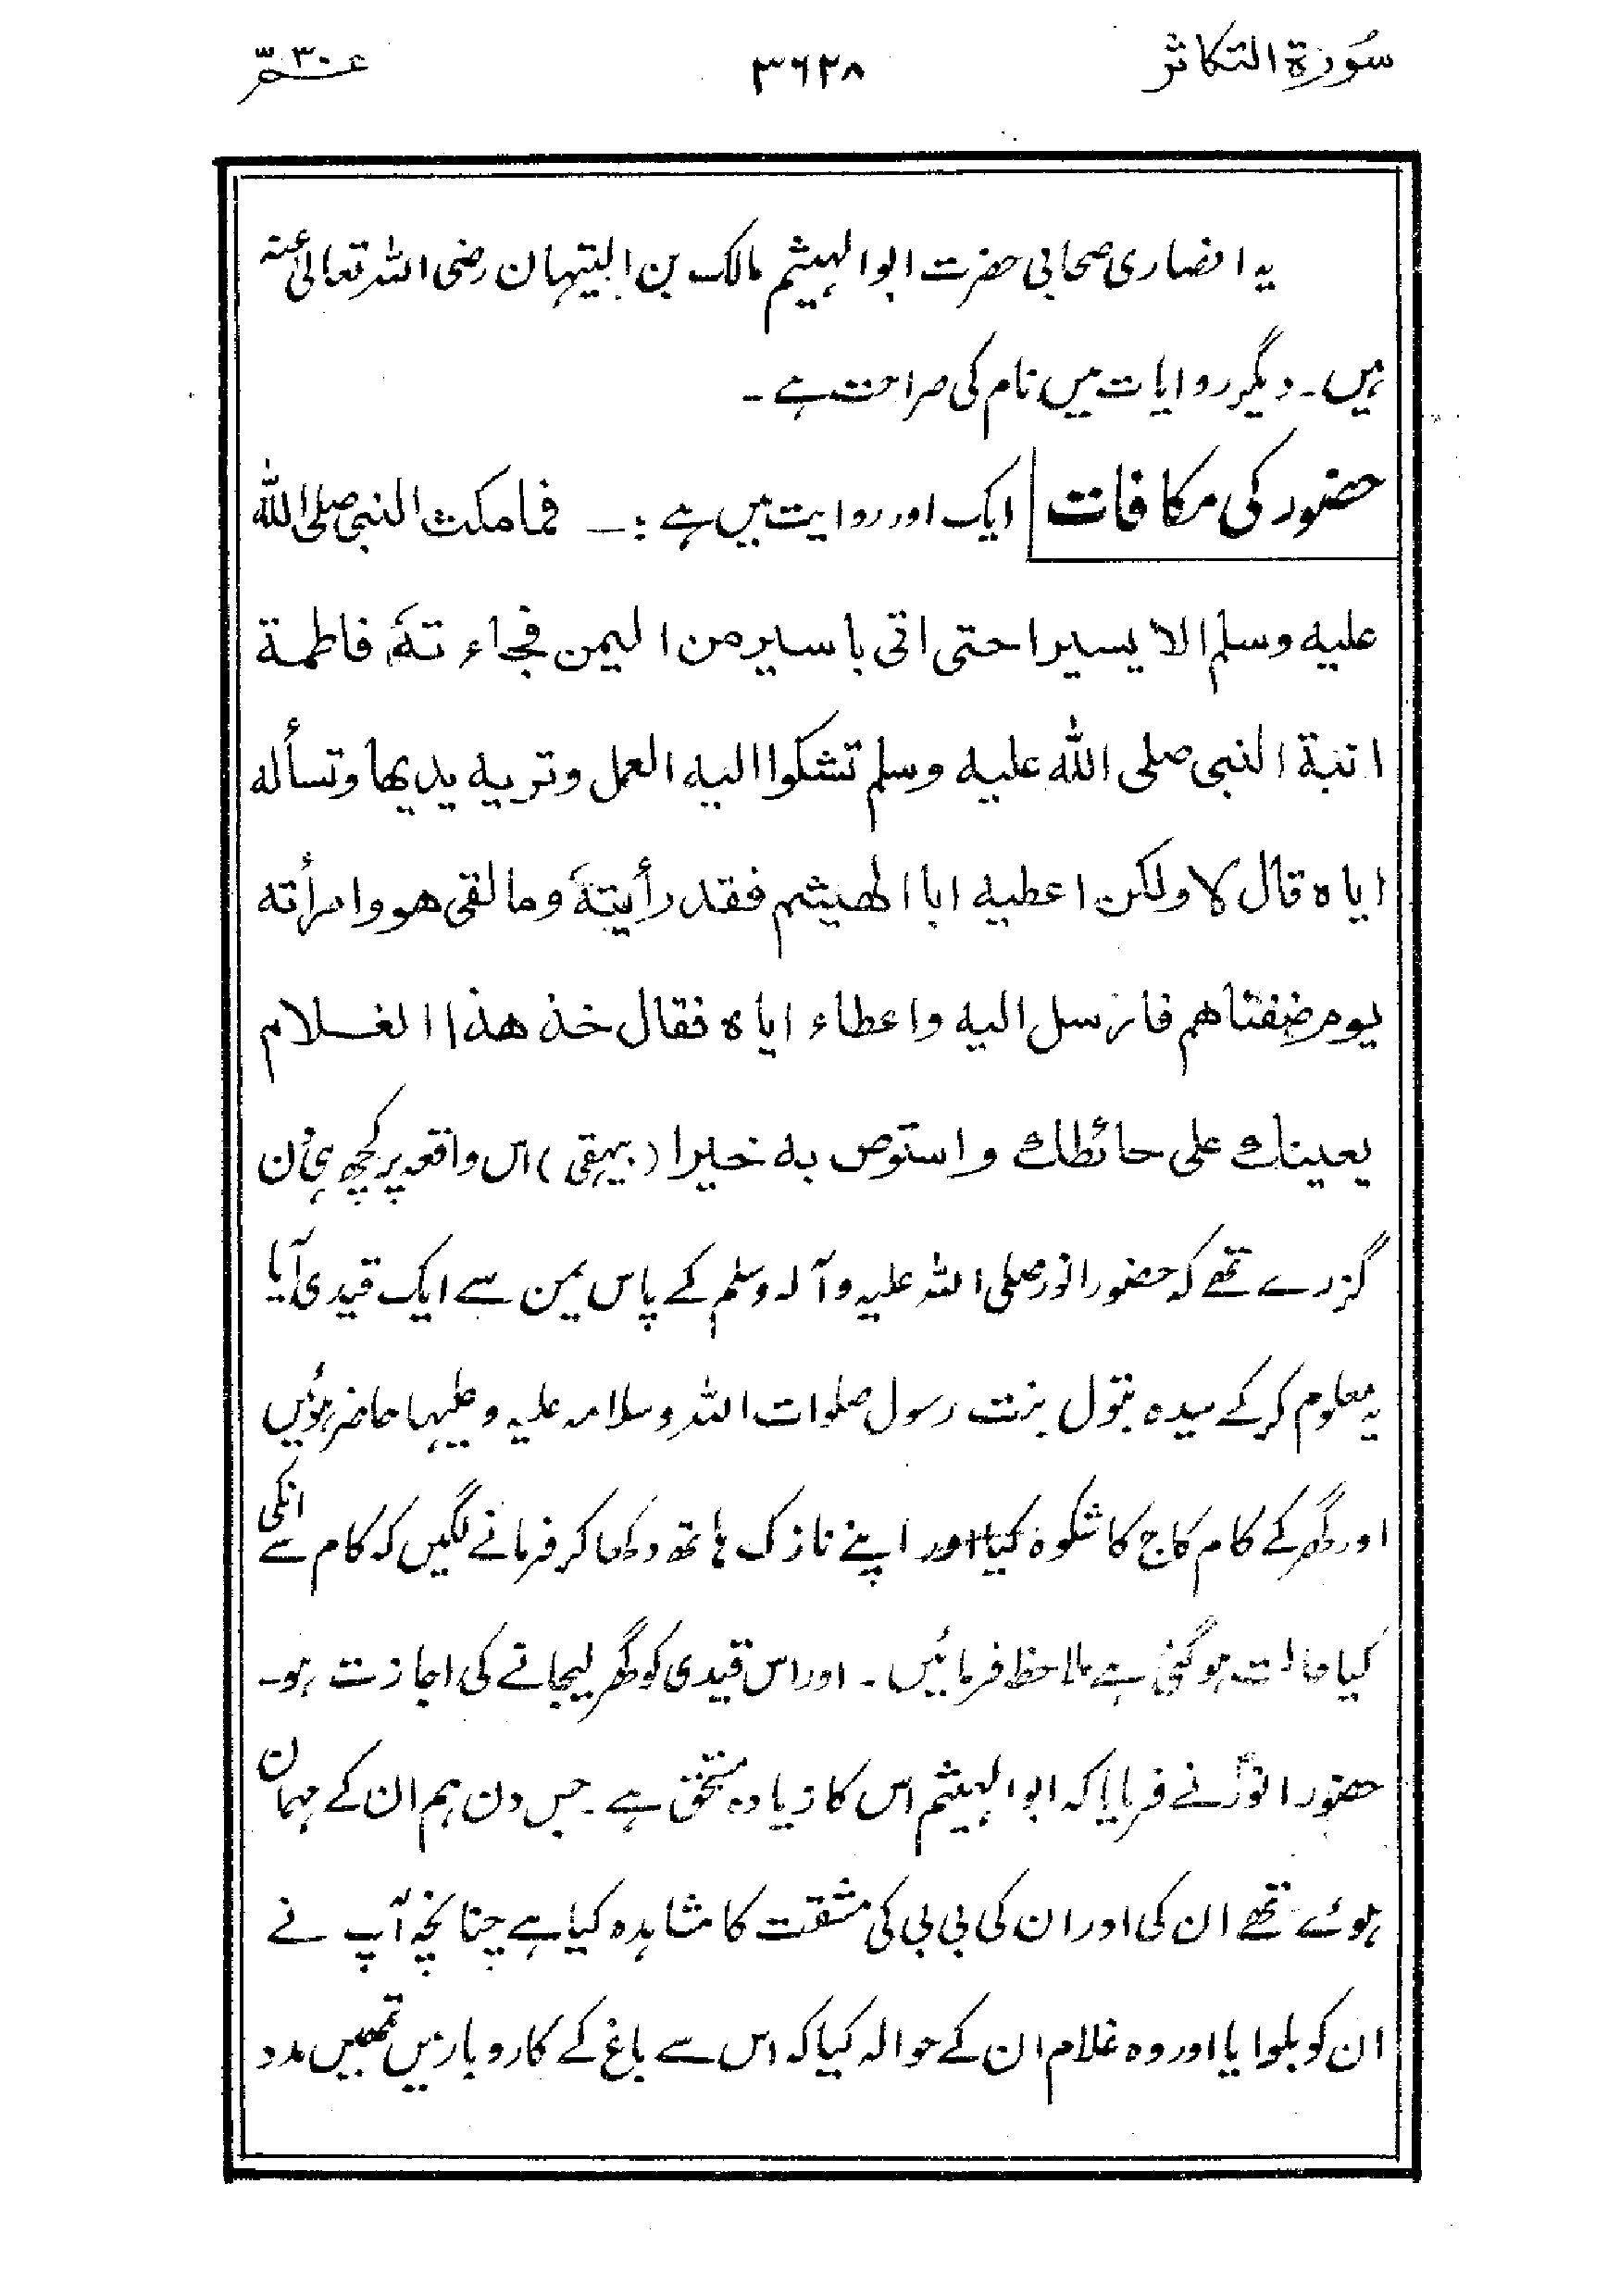 سُورة التكاثر ۳۶۲۸ عمّ ۳۰
یہ انصاری صحابی حضرت ابوالہیثم مالک بن التیہان رضی اللہ تعالیٰ عنہ
ہیں۔ دیگر روایات میں نام کی صراحت ہے ۔
حضور کی مکافات ایک اور روایت میں ہے :۔ فمامکث النبی صلی اللہ
علیہ وسلم الا یسیرا حتی اتی باسیر من الیمن فجاءتہَ فاطمة
ابنة النبی صلی اللہ علیہ وسلم تشکوا الیہ العمل وتریہ یدیھا وتسألہ
ایاہ قال لا ولکن اعطیہ ابا الھیثم فقد رأیتہَ وما لقی ھو وامرأتہ
یوم ضفناھم فارسل الیہ واعطاء ایاہ فقال خذ ھذا الغلام
یعینك علی حائطك واستوص بہ خیرا (بیہقی) اس واقعہ پر کچھ ہی دن
گزرے تھے کہ حضور انور صلی اللہ علیہ وآلہ وسلم کے پاس یمن سے ایک قیدی آیا
یہ معلوم کرکے سیدہ بتول بنت رسول صلوات اللہ وسلامہ علیہ وعلیہا حاضر ہوئیں
اور گھر کے کام کاج کا شکوہ کیا اور اپنے نازک ہاتھ دکھا کر فرمانے لگیں کہ کام سے انکی
کیا حالت ہوگئی ہے ملاحظ فرمائیں ۔ اور اس قیدی کو گھر لیجانے کی اجازت ہو۔
حضور انورؐ نے فرمایا کہ ابوالہیثم اس کا زیادہ مستحق ہے ۔ جس دن ہم ان کے مہمان
ہوئے تھے ان کی اور ان کی بی بی کی مشقت کا مشاہدہ کیا ہے چنانچہ آپ نے
ان کو بلوایا اور وہ غلام ان کے حوالہ کیا کہ اس سے باغ کے کاروبار میں تمھیں مدد